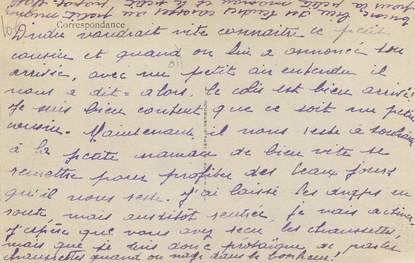 Correspondance
Dudu voudrait vite connaître ce petit
cousin et quand on lui a annoncé son
arrivée, avec un petit air entendu il
nous a dit = alors, le colis est bien arrivé!
Je suis bien content que ce soit un petit
cousin. Maintenant, il nous reste à souhaiter
à la petite maman de bien vite se
remettre pour profiter des beaux jours
qu'il nous reste. J'ai laissé les en
route, mais aussitôt rentrée, je vais activer
J'espère que vous avez reçu les chaussettes,
mais que je suis donc prosaïque, de parler
chaussettes quand on nage dans le bonheur!